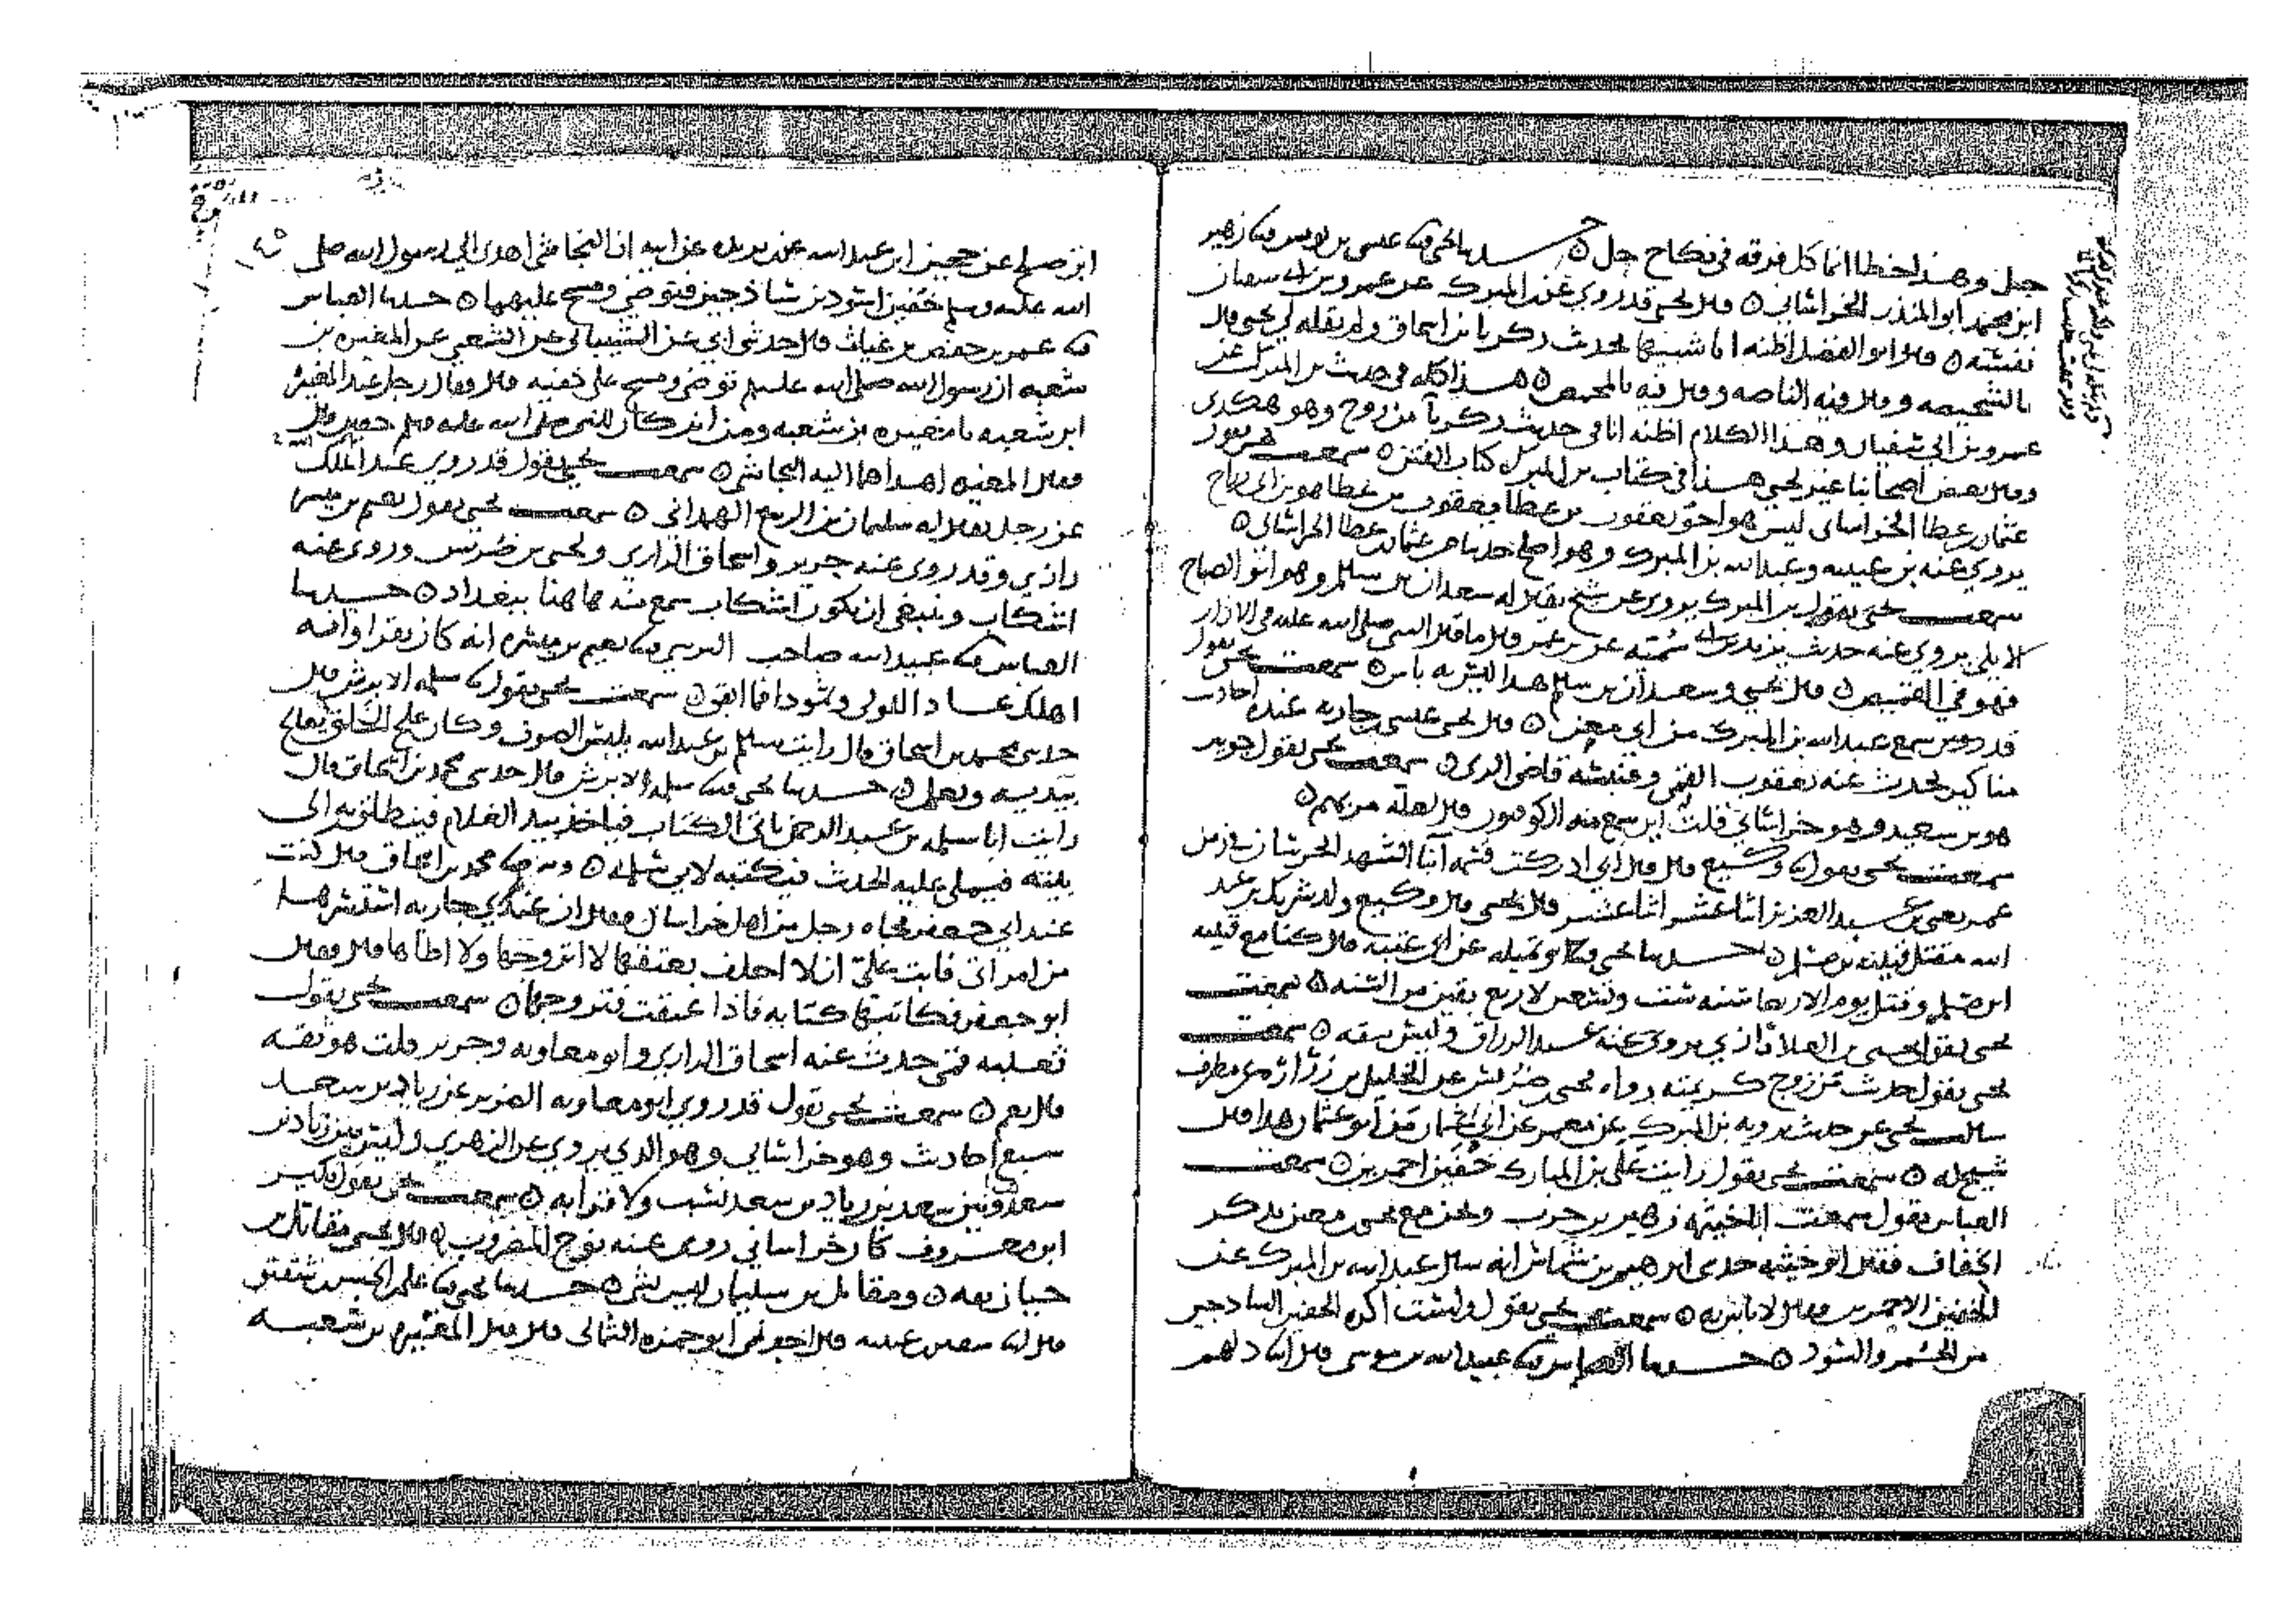 جبل وهذا خطا انما كل فرقه في نكاح جل ه حدثنا يحيى نا عيسى بن يونس نا زهير
ابن محمد ابو المنذر الخراساني ه قال يحيى قد روى عن بن المبرك عن عمرو بن ابي سفيان
نفسه ه قال ابو الفضل اظنه اناشبيها بحديث زكريا بن اسحاق ولم نقله ليحيى قال
بالشحيصه وقال فيه الناصه وقال فيه بالمحيص ه هذا كله في حديث بن المبرك عن
عمرو بن ابي سفيان وهذا الكلام اظنه انا في حديث زكريا من روح وهو هكذى
وقال بعض اصحابنا عن يحيى هذا في كتاب بن المبرك كتاب الفتن ه سمعت يحيى يقول
عثمان بن عطا الخراساني ليس هو اخو يعقوب بن عطا ويعقوب بن عطا هو بن ابي رباح
يروي عنه بن عيينه وعبد الله بن المبرك وهو اصلح حديثا من عثمان بن عطا الخراساني ه
سمعت يحيى يقول بن المبرك يروي عن شيخ يقال له سعدان بن سالم وهو ابو الصباح
الايلي يروي عنه حديث يزيد بن ابي سميه عن بن عمر قال ما قال النبي صلى الله عليه في الازار
فهو في القميص ه قال يحيى وسعدان بن سالم هذا ليس به باس ه سمعت يحيى يقول
قد روى سمع عبد الله بن المبرك من ابي معن ه قال يحيى عيسى بن جاريه عنده احاديث
مناكير يحدث عنه يعقوب القمي وعنبسه قاضي الري ه سمعت يحيى يقول جويبر
هو بن سعيد وهو خراساني قلت اين سمع منه الكوفيون قال لعله مر بهم ه
سمعت يحيى يقول نا وكيع قال قال ابي ادركت قسمه آنا الشهد الخراسان في زمن
عمر يعني بن عبد العزيز اثنا عشر اثنا عشر قال يحيى قال وكيع ولد شريك بن عبد
الله مقتل قتيبه بن مسلم ه حدثنا يحيى نا ابو تميله عن ابي عتبه قال كنا مع قتيبه
ابن مسلم وقتل يوم الاربعا سنه ست وتسعين لاربع بقين من السنه ه سمعت
يحيى يقول يحيى بن العلا رازي يروي عنه عبد الرزاق وليس بثقه ه سمعت
يحيى يقول حديث من زوج كريمته رواه يحيى بن ضريس عن الخليل بن زراره عن مطرف
سالت يحيى عن حديث يرويه بن المبرك عن معمر عن ابي عثمان من ابو عثمان هذا قال
شيخ له ه سمعت يحيى يقول رايت على بن المبارك خفين احمرين ه سمعت
العباس يقول سمعت ابا خيثمه زهير بن حرب ونحن مع يحيى بن معين بذكر
الخفاف فقال ابو خيثمه حدثني ابرهيم بن شماس انه سال عبد الله بن المبرك عن
الخفين الاحمرين فقال لا باس به ه سمعت يحيى يقول ولست اكره الخفين الساذجين
من الحمر والسود ه حدثنا العباس نا عبيد الله بن موسى قال انا دلهم
ابن صالح عن حجير ابن عبد الله عن بن بريده عن ابيه ان النجاشي اهدى الى رسول الله صلى
الله عليه وسلم خفين اسودين ساذجين فتوضى ومسح عليهما ه حدثنا العباس
نا عمر بن حفص بن غياث قال حدثني ابي عن الشيباني عن الشعبي عن المغيره بن
شعبه ان رسول الله صلى الله عليه وسلم توضى ومسح على خفيه قال وقال رجل عند المغيره
ابن شعبه يا مغيره بن شعبه ومن اين كان للنبي صلى الله عليه وسلم خفين قال
فقال المغيره اهداها اليه النجاشي ه سمعت يحيى يقول قد روى عبد الملك
عن رجل يقال له سليمان بن الربيع الهمداني ه سمعت يحيى يقول نعيم بن ميسره
رازي وقد روى عنه جرير واسحاق الرازي ويحيى بن ضريس وروى عنه
اشكاب وينبغي ان يكون اشكاب سمع منه هاهنا ببغداد ه حدثنا
العباس نا عبيد الله صاحب النرسي نا نعيم بن ميسره انه كان يقرا وانه
اهلك عادا اللولى وثمودا فما ابقى ه سمعت يحيى يقول نا سلمه الابرش قال
حدثني محمد بن اسحاق قال رايت سالم بن عبد الله يلبس الصوف وكان علج الخلق يعالج
بيديه ويعمل ه حدثنا يحيى نا سلمه الابرش قال حدثني محمد بن اسحاق قال
رايت ابا سلمه بن عبد الرحمن ياتي الكتاب فياخذ بيد الغلام فينطلق به الى
بيته فيملي عليه الحديث فيكتبه لابي سلمه ه محمد بن اسحاق قال كنت
عند ابي جعفر فجاه رجل من اهل خراسان فقال ان عندي جاريه استسرها
من امراتي فابت علي الا احلف بعتقها لا اتزوجها ولا اطاها قال فقال
ابو جعفر فكاتبها كتابه فاذا عتقت فتزوجها ه سمعت يحيى يقول
ثعلبه حدث عنه اسحاق الرازي وابو معاويه وجرير قلت هو ثقه
قال نعم ه سمعت يحيى يقول قد روى ابو معاويه الضرير عن زياد بن سعد
سبع احاديث وهو خراساني وهو الذي يروي عن الزهري وليس بين زياد بن
سعد وبين سعد بن زياد بن سعد نسب ولا قرابه ه سمعت يحيى يقول بكير
ابن معروف كان خراساني روى عنه نوح المضروب ه قال يحيى مقاتل بن
حيان ثقه ه ومقاتل بن سليمان ليس بشي ه حدثنا يحيى نا علي بن الحسن بن شقيق
قال انا سفين بن عيينه قال اخبرني ابو حمزه الثمالي قال قال المغيره بن شعبه